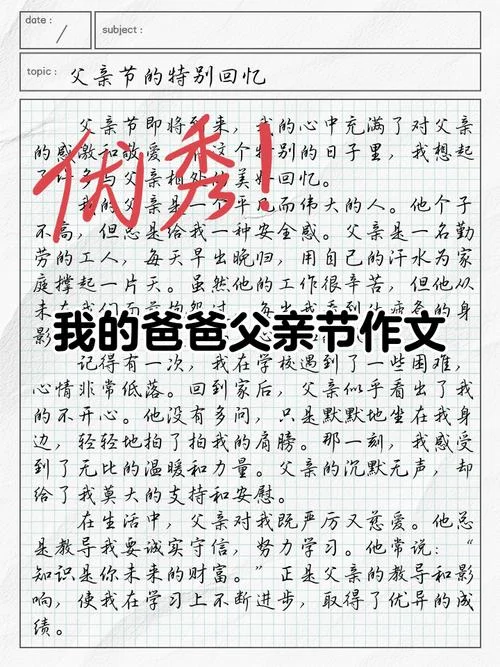 date :
subject :
topic : 父亲节的特别回忆
父亲节即将到来，我的心中充满了对父亲
的感激和敬爱。在这个特别的日子里，我想起
了许多与父亲相处的美好回忆。
优秀！
我的父亲是一个平凡而伟大的人。他个子
不高，但总是给我一种安全感。父亲是一名勤
劳的工人，每天早出晚归，用自己的汗水为家
庭撑起一片天。虽然他的工作很辛苦，但他从
未在我们面前抱怨过。每当我看到他疲惫的身
影
我的爸爸父亲节作文
记得有一次，我在学校遇到了一些困难，
心情非常低落。回到家后，父亲似乎看出了我
的不开心。他没有多问，只是默默地坐在我身
边，轻轻地拍了拍我的肩膀。那一刻，我感受
到了无比的温暖和力量。父亲的沉默无声，却
给了我莫大的支持和安慰。
在生活中，父亲对我既严厉又慈爱。他总
是教导我要诚实守信，努力学习。他常说：“
知识是你未来的财富。”正是父亲的教导和影
响，使我在学习上不断进步，取得了优异的成
绩。